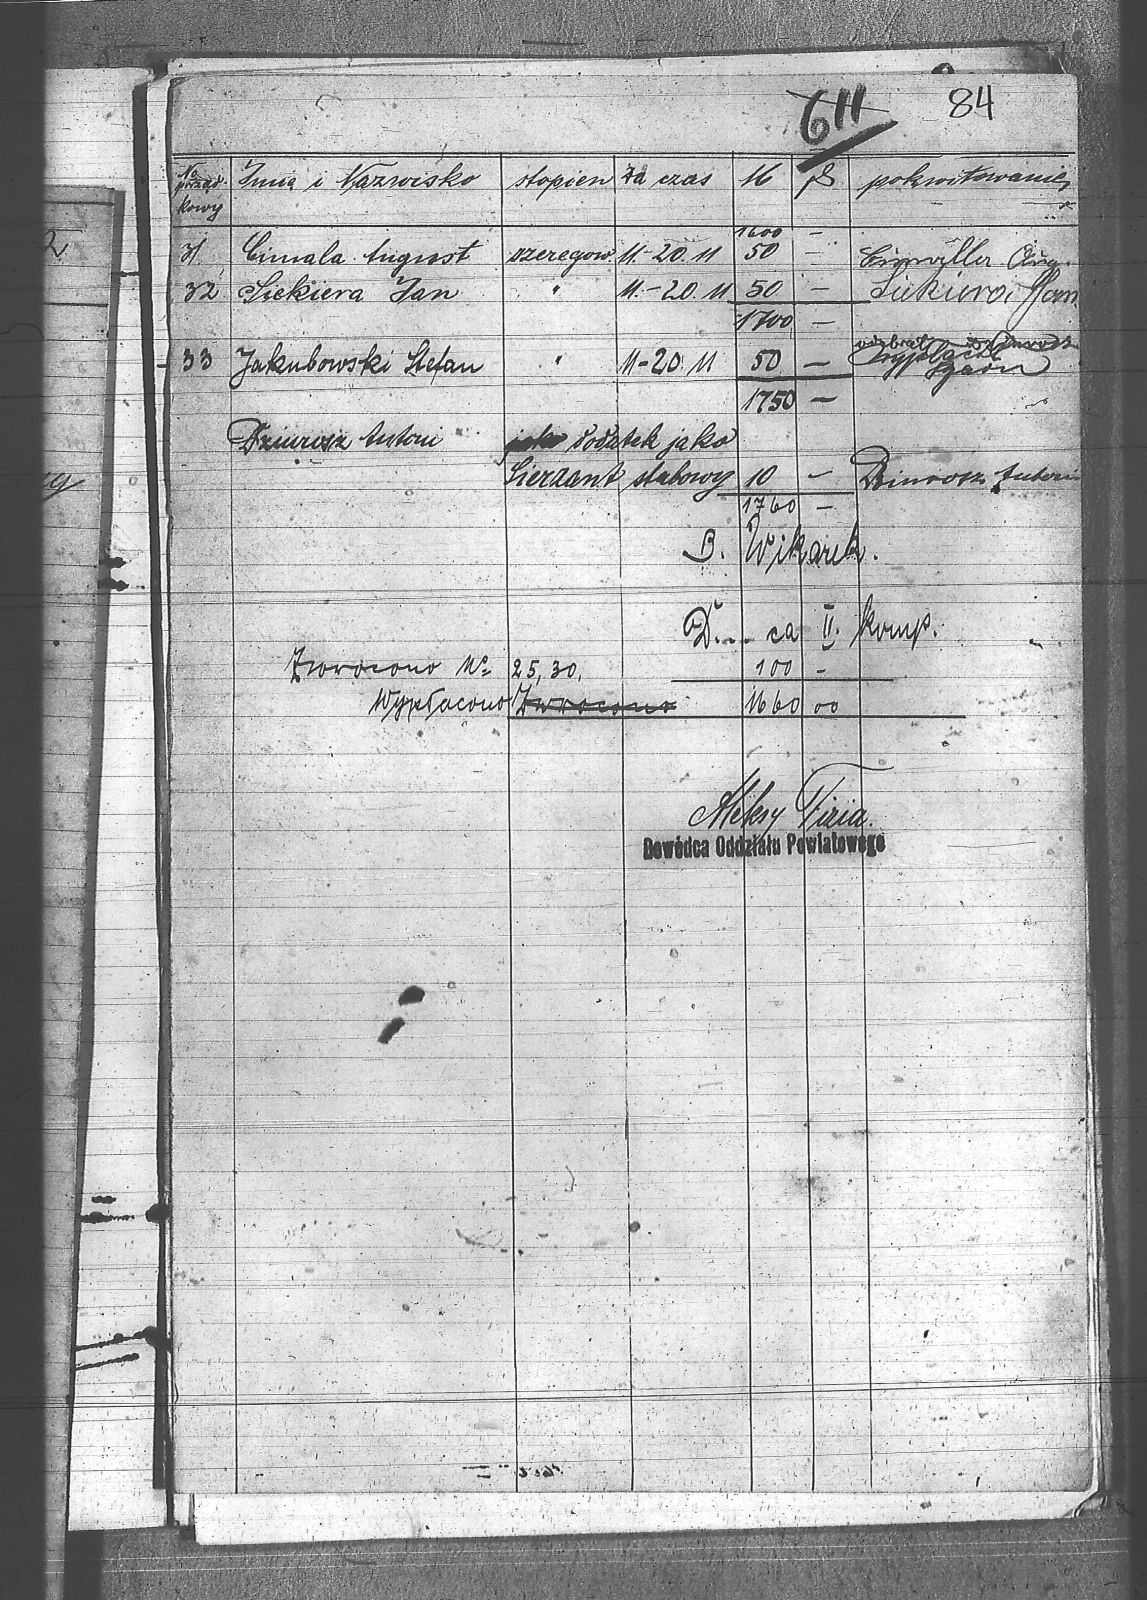 611 84
No porząd- kowy Imię i Nazwisko stopien za czas M ₰ pokwitowanie
1600 —
31 Cimala August szeregow 11.-20.11 50 —
32 Siekiera Jan " 11.-20.11 50 — Siekiera Jan
1700 —
33 Jakubowski Stefan " 11-20.11 50 — odebrał
1750 —
Dziurosz Antoni dodatek jako
Sierzant stabowy 10 — Dziurosz Antoni
1760 —
B. Wikarek.
D...ca II. komp.
Zwrocono No 25, 30, 100 —
Wypłacono Zwrocono 1660 00
Dowódca Oddziału Powiatowego